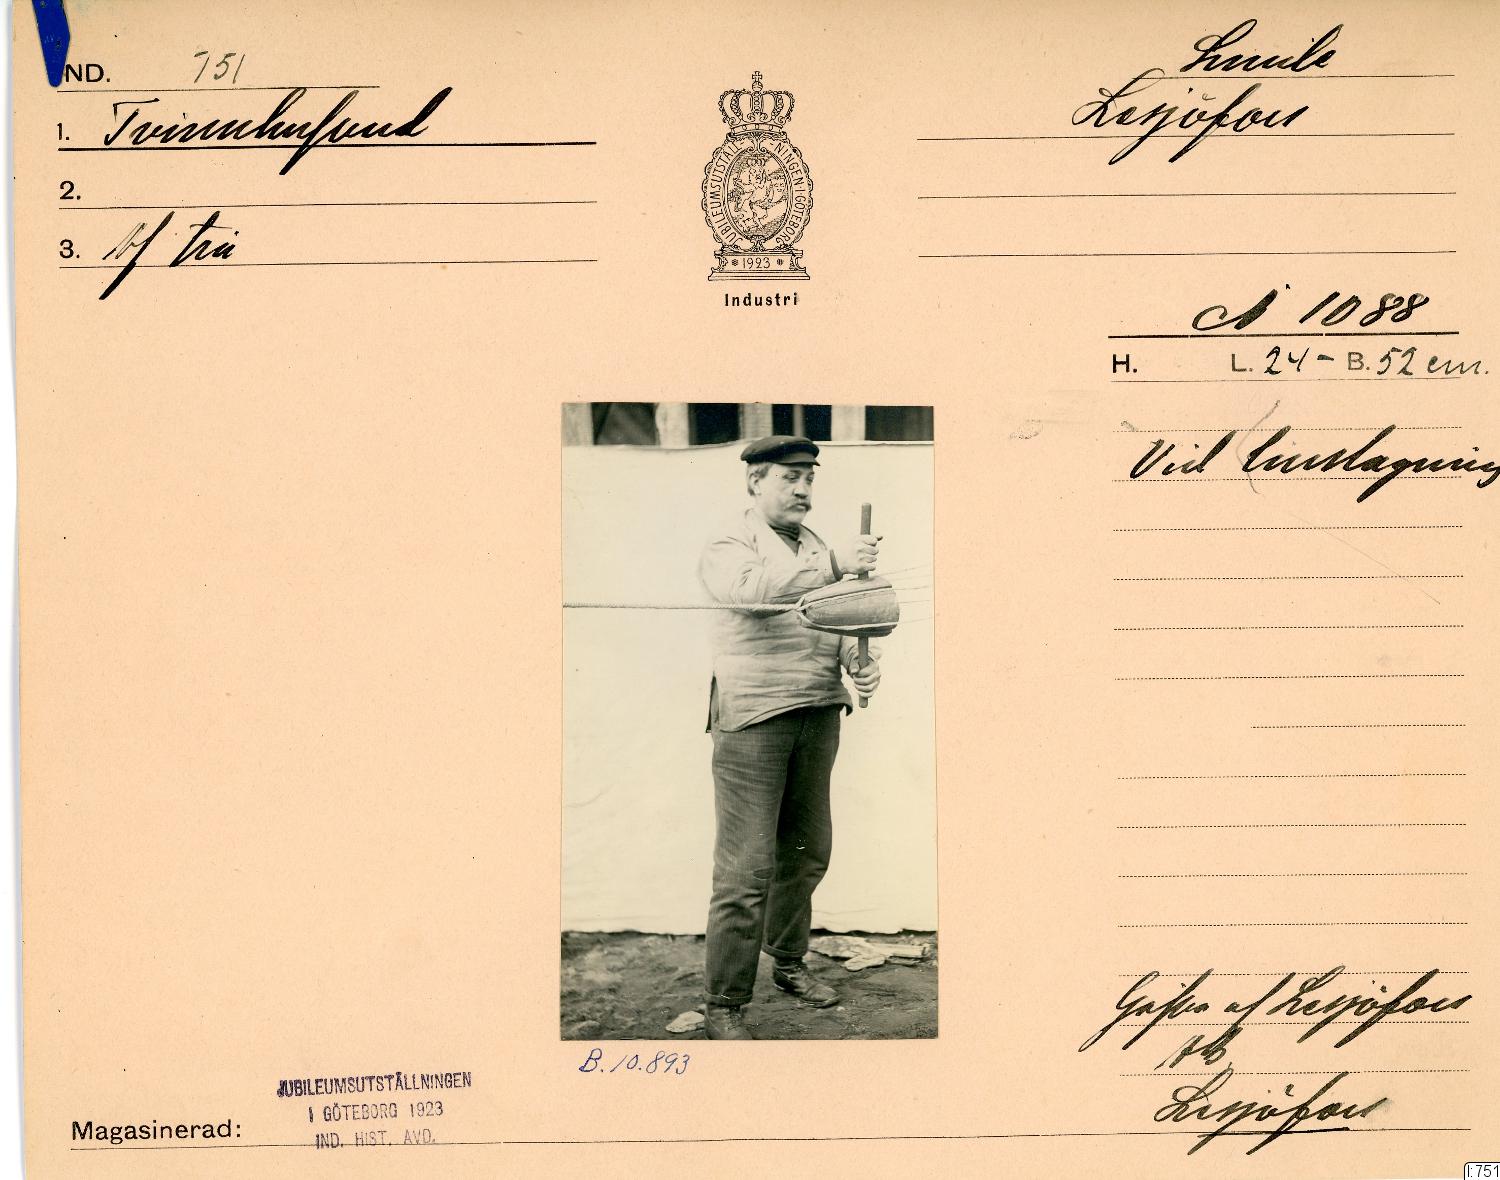 IND. 751
1. Tvinnhufvud
2.
3. Af trä
JUBILEUMSUTSTÄLLNINGEN I GÖTEBORG
* 1923 *
Industri
Lesjöfors
N 1088
H. L. 24 - B. 52 cm.
Vid linslagning
Gåfva af Lesjöfors
AB
Lesjöfors
B. 10.893
JUBILEUMSUTSTÄLLNINGEN
I GÖTEBORG 1923
IND. HIST. AVD.
Magasinerad:
I:751